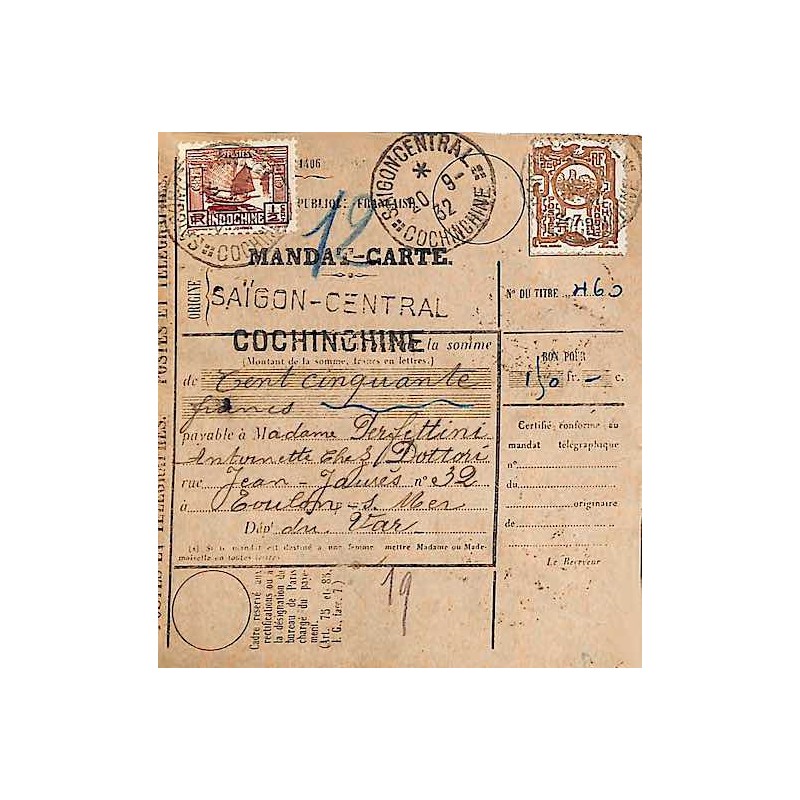 POSTES
INDOCHINE
1406
RÉPUBLIQUE FRANÇAISE
SAIGON CENTRAL
20 9 32
COCHINCHINE
RF
12
MANDAT-CARTE.
ORIGINE
SAÏGON-CENTRAL
COCHINCHINE
la somme
(Montant de la somme, francs en lettres.)
de Cent cinquante
francs
payable à Madame Perfettini
Antoinette chez Dottori
rue Jean-Jaurès n° 32
à Toulon-s-Mer
Dépt du Var
(a) Si le mandat est destiné à une femme mettre Madame ou Made-
moiselle en toutes lettres.
N° DU TITRE 460
BON POUR
150 fr. - c.
Certifié conforme au
mandat télégraphique
n°
du
originaire
de
Le Receveur
Cadre réservé aux
rectifications ou à
la désignation du
bureau de Paris
chargé du paye-
ment.
(Art. 75 et 85,
I. G., fasc. 7.)
19
POSTES ET TÉLÉGRAPHES.